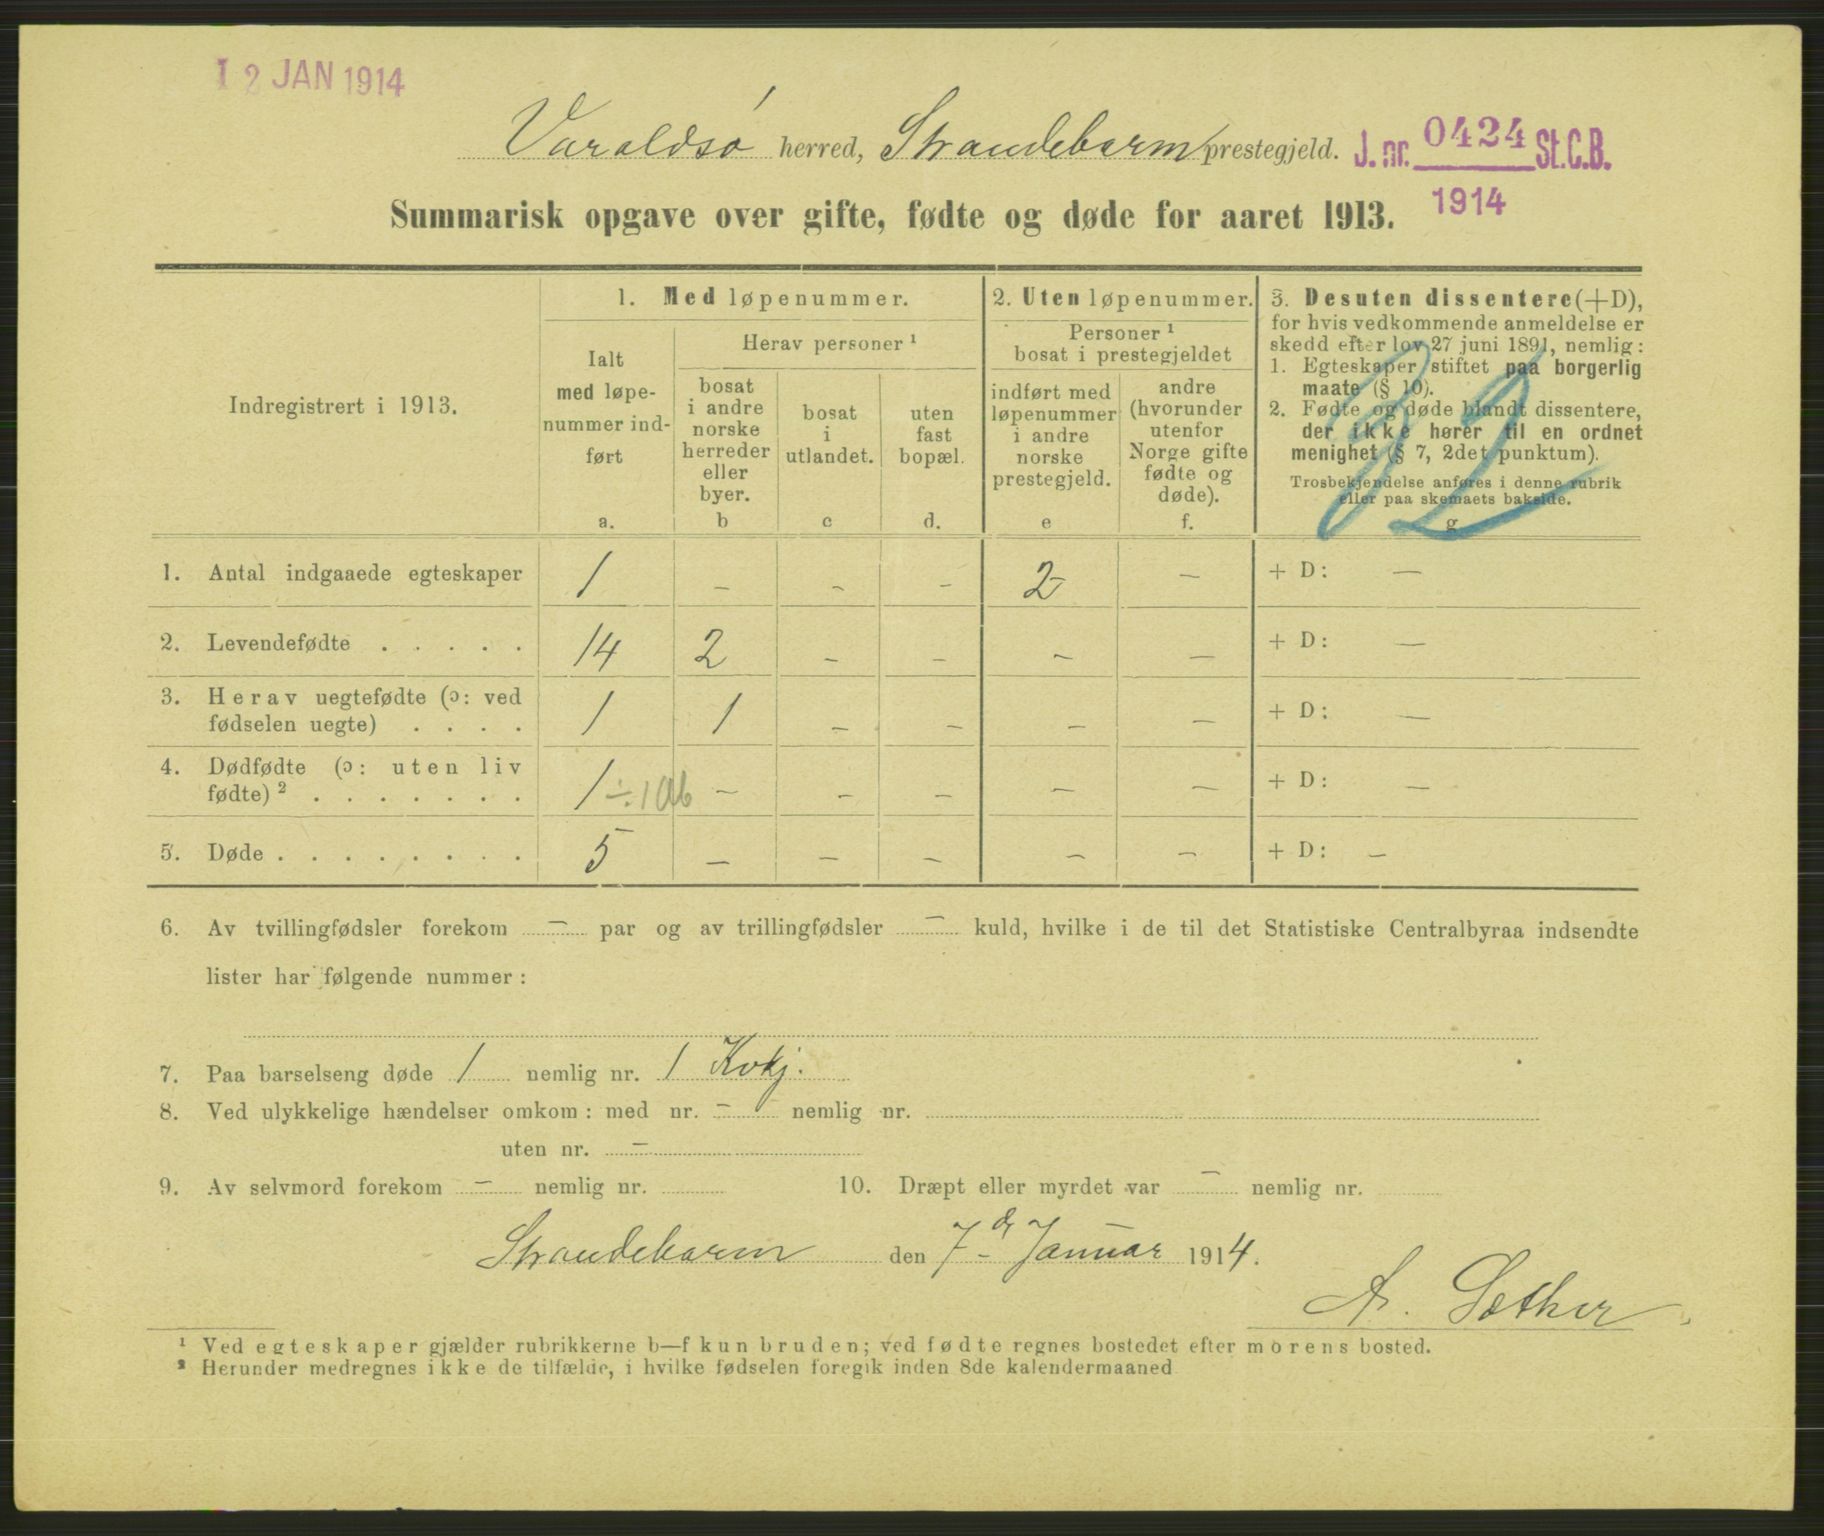 12 JAN 1914
Varaldsø herred, Strandebarm prestegjeld. J. nr. 0424 St.C.B.
1914
Summarisk opgave over gifte, fødte og døde for aaret 1913.
Indregistrert i 1913.
1. Med løpenummer.
Ialt
med løpe-
nummer ind-
ført
a.
Herav personer ¹
bosat
i andre
norske
herreder
eller
byer.
b
bosat
i
utlandet.
c
uten
fast
bopæl.
d.
2. Uten løpenummer.
Personer ¹
bosat i prestegjeldet
indført med
løpenummer
i andre
norske
prestegjeld.
e
andre
(hvorunder
utenfor
Norge gifte
fødte og
døde).
f.
3. Desuten dissentere (+D),
for hvis vedkommende anmeldelse er
skedd efter lov 27 juni 1891, nemlig:
1. Egteskaper stiftet paa borgerlig
maate (§ 10).
2. Fødte og døde blandt dissentere,
der ikke hører til en ordnet
menighet (§ 7, 2det punktum).
Trosbekjendelse anføres i denne rubrik
eller paa skemaets bakside.
g
1. Antal indgaaede egteskaper 1 – – – 2 – + D: –
2. Levendefødte . . . . . 14 2 – – – – + D: –
3. Herav uegtefødte (ɔ: ved
fødselen uegte) . . . . 1 1 – – – – + D: –
4. Dødfødte (ɔ: uten liv
fødte) ² . . . . . . . 1 ÷1 Ab – – – – – + D: –
5. Døde . . . . . . . . 5 – – – – – + D: –
6. Av tvillingfødsler forekom – par og av trillingfødsler – kuld, hvilke i de til det Statistiske Centralbyraa indsendte
lister har følgende nummer:
7. Paa barselseng døde 1 nemlig nr. 1 Kvkj.
8. Ved ulykkelige hændelser omkom: med nr. – nemlig nr.
uten nr. –
9. Av selvmord forekom – nemlig nr. 10. Dræpt eller myrdet var – nemlig nr.
Strandebarm den 7de Januar 1914.
A. Sæther
¹ Ved egteskaper gjælder rubrikkerne b—f kun bruden; ved fødte regnes bostedet efter morens bosted.
² Herunder medregnes ikke de tilfælde, i hvilke fødselen foregik inden 8de kalendermaaned